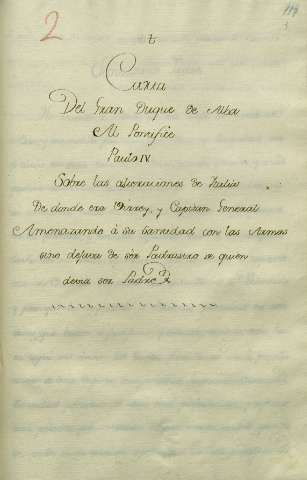 2
t
Carta
Del Gran Duque de Alba
Al Pontifice
Paulo IV
Sobre las alteraciones de Italia
De donde era Virrey, y Capitan General
Amenazando à Su Santidad con las Armas
sino dejava de ser Padrastro de quien
devia ser Padre